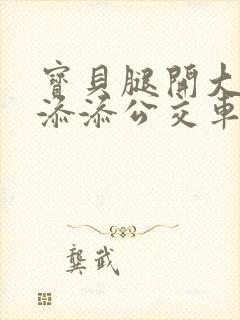 寶貝腿開大
添添公交車
龔武